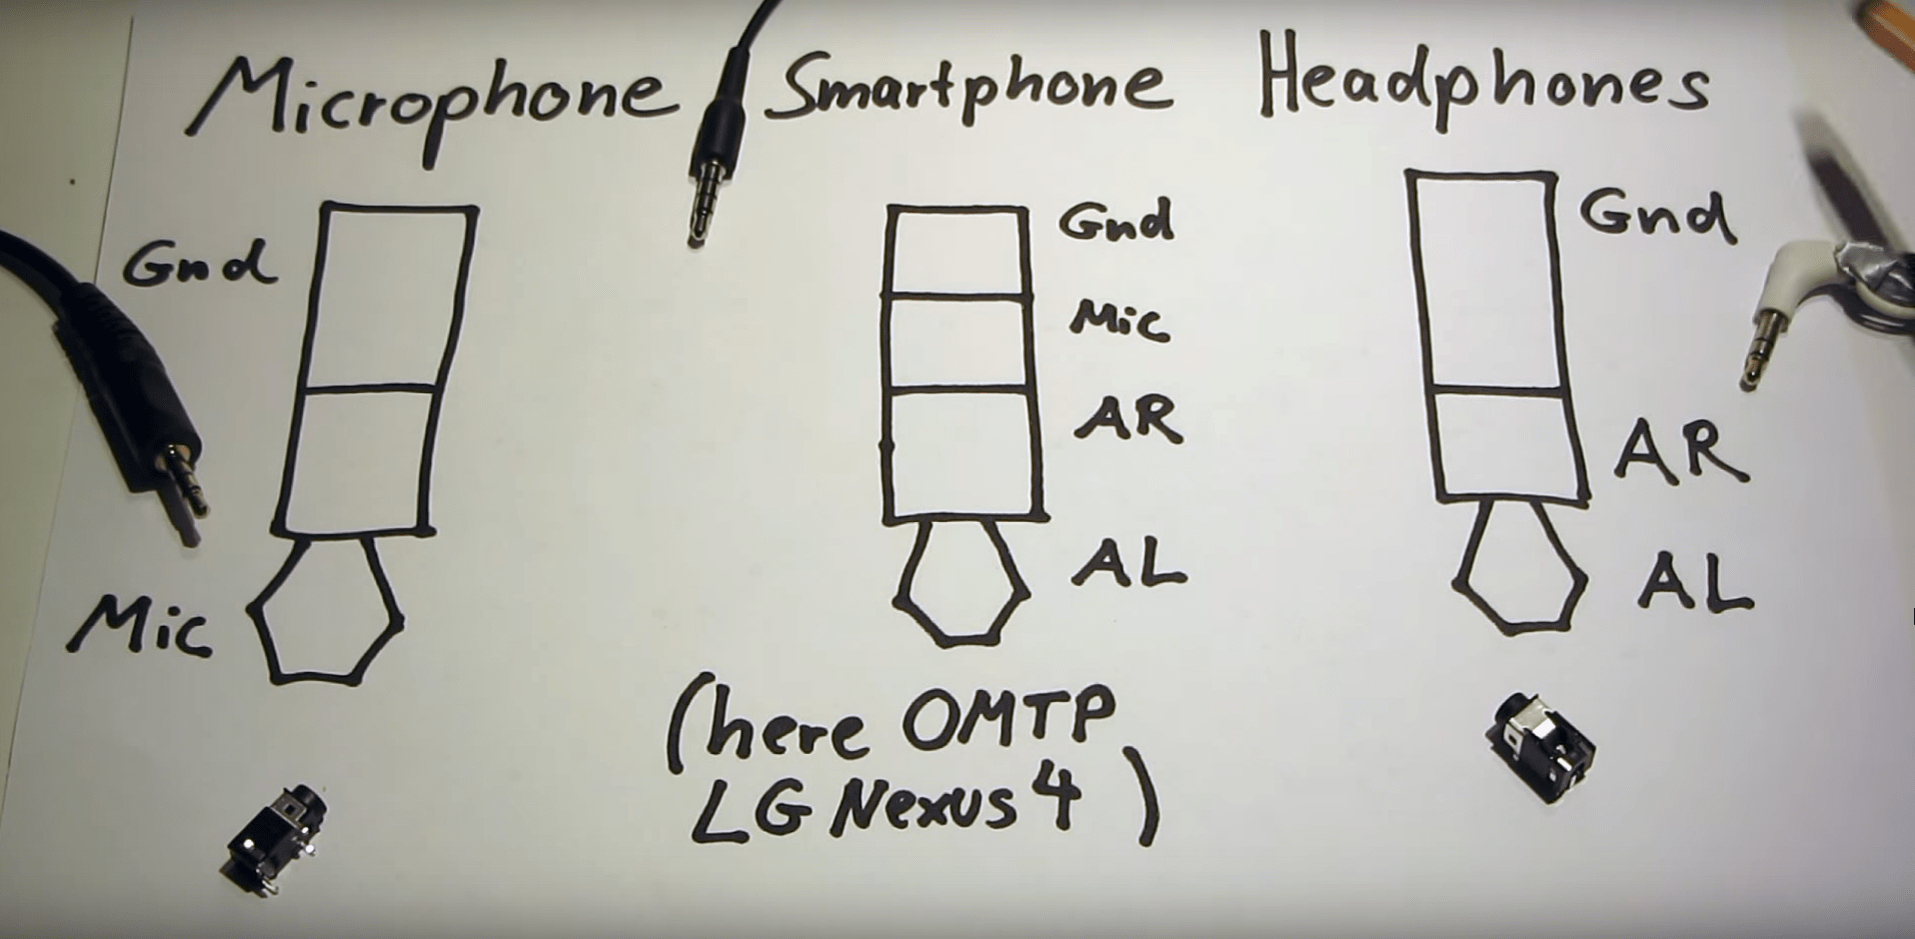 Microphone
Gnd
Mic
Smartphone
Gnd
Mic
AR
AL
(here OMTP
LG Nexus 4)
Headphones
Gnd
AR
AL